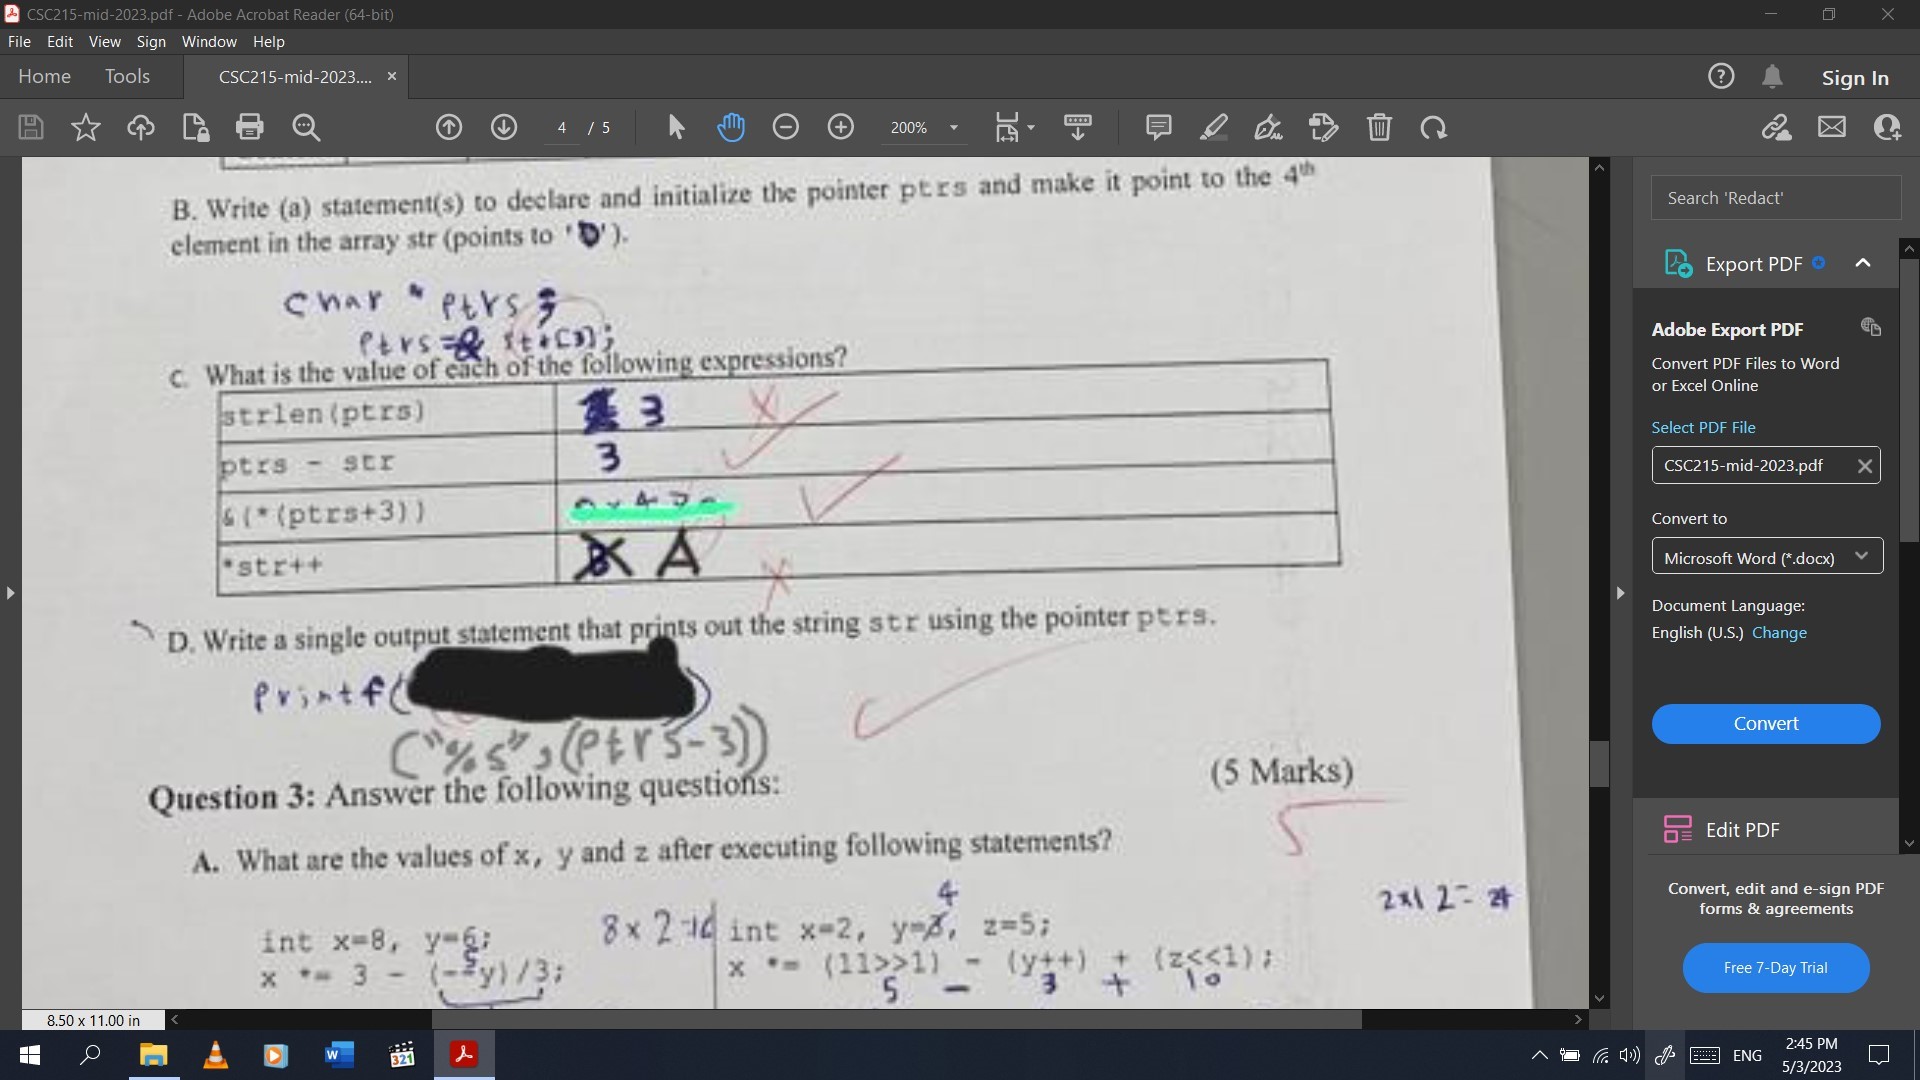 CSC215-mid-2023.pdf - Adobe Acrobat Reader (64-bit)
File Edit View Sign Window Help
Home Tools CSC215-mid-2023.... ×
Sign In
4 / 5
200%
B. Write (a) statement(s) to declare and initialize the pointer ptrs and make it point to the 4th
element in the array str (points to 'D').
char * ptrs ;
ptrs = & str[3];
C. What is the value of each of the following expressions?
strlen(ptrs) 3
ptrs - str 3
&(*(ptrs+3))
*str++ A
D. Write a single output statement that prints out the string str using the pointer ptrs.
printf( )
("%s",(ptrs-3))
(5 Marks)
Question 3: Answer the following questions:
5
A. What are the values of x, y and z after executing following statements?
4
int x=8, y=6; 8x2=16 int x=2, y=3, z=5;
5
x *= 3 - (--y)/3; x *= (11>>1) - (y++) + (z<<1);
5 - 3 + 10
8.50 x 11.00 in
Search 'Redact'
Export PDF
Adobe Export PDF
Convert PDF Files to Word
or Excel Online
Select PDF File
CSC215-mid-2023.pdf
Convert to
Microsoft Word (*.docx)
Document Language:
English (U.S.) Change
Convert
Edit PDF
Convert, edit and e-sign PDF
forms & agreements
Free 7-Day Trial
ENG
2:45 PM
5/3/2023